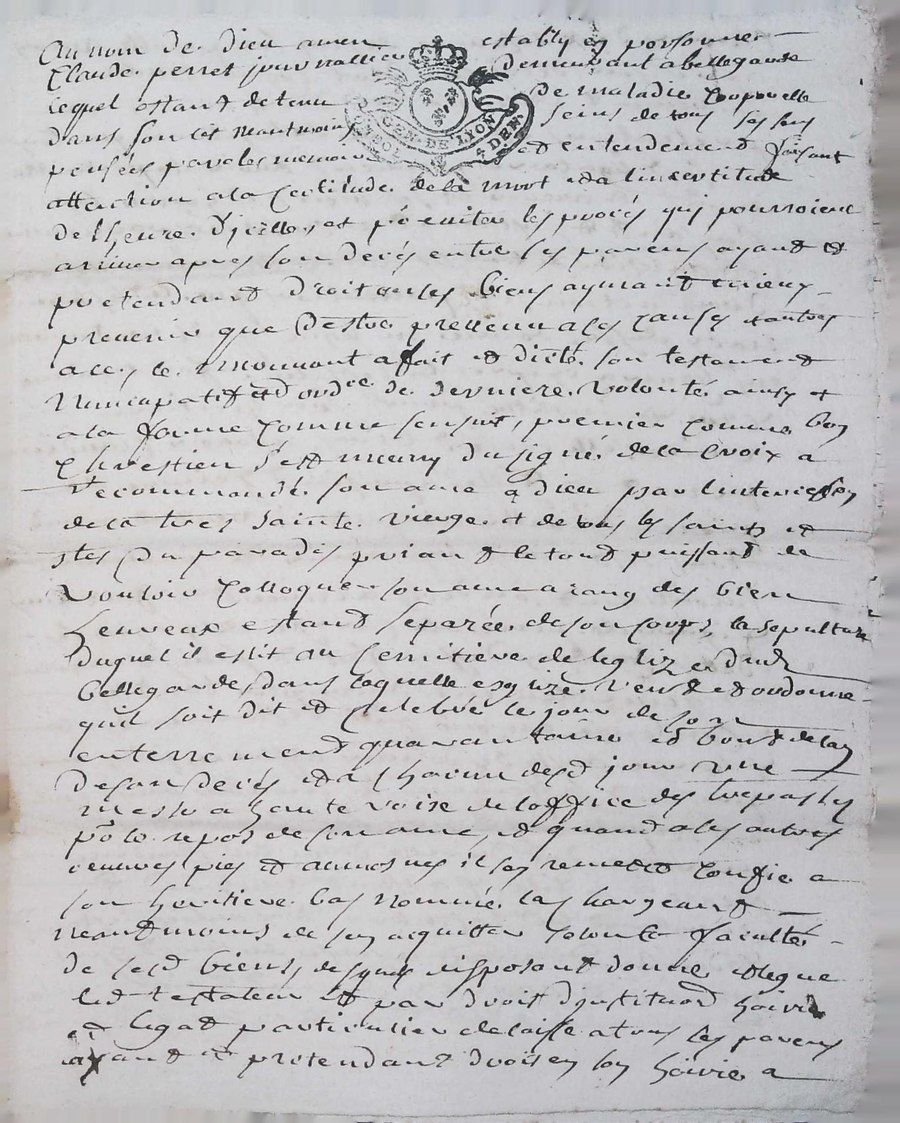 Au nom de dieu amen estably en personne
Claude perret journallier demeurant a bellegarde
lequel estant detenu de maladie corporelle
dans son lit neantmoins seins de tous ses sens
GEN. DE LYON
SOL 4 DEN.
pensées paroles memoire et entendement faisant
attention a la certitude de la mort et a lincertitude
de lheure dicelle, et po eviter les procés qui pourroient
arriver apres son decés entre ses parens ayant et
pretendant droit en ses biens aymant mieux
prevenir que destre prevenu a ses causes et autres
a ces le mouvant a fait et dicté son testament
Nuncupatif et ordre de derniere volonté ainsy et
a la forme comme sensuit, premier comme bon
Chrestien sest muny du signe de la Croix a
recommandé son ame a dieu par lintercession
de la tres sainte vierge et de tous les saints et
stes du paradis priant le tout puissant de
vouloir colloquer son ame a rang des bien
heureux estant separée de son corps, la sepulture
duquel il eslit au cemitiere de leglize dud
bellegarde, dans laquelle esglize veut et ordonne
quil soit dit et celebré le jour de son
enterrement quarantaine et bout de lan
de son decés et a chacun desd jour une
messe a haute voise de loffice des trepassés
po le repos de son ame, et quand a ses autres
oeuvres pies et aumosnes il sen remet et confie a
son heritiere bas nommée la chargeant
neantmoins de sen acquitter selon les facultés
de sesd biens, desquels disposant donne et legue
led testateur et par droit dinstitution hoirie
et legat particulier delaisse a tous ses parens
ayant et pretendant droit en son hoirie a